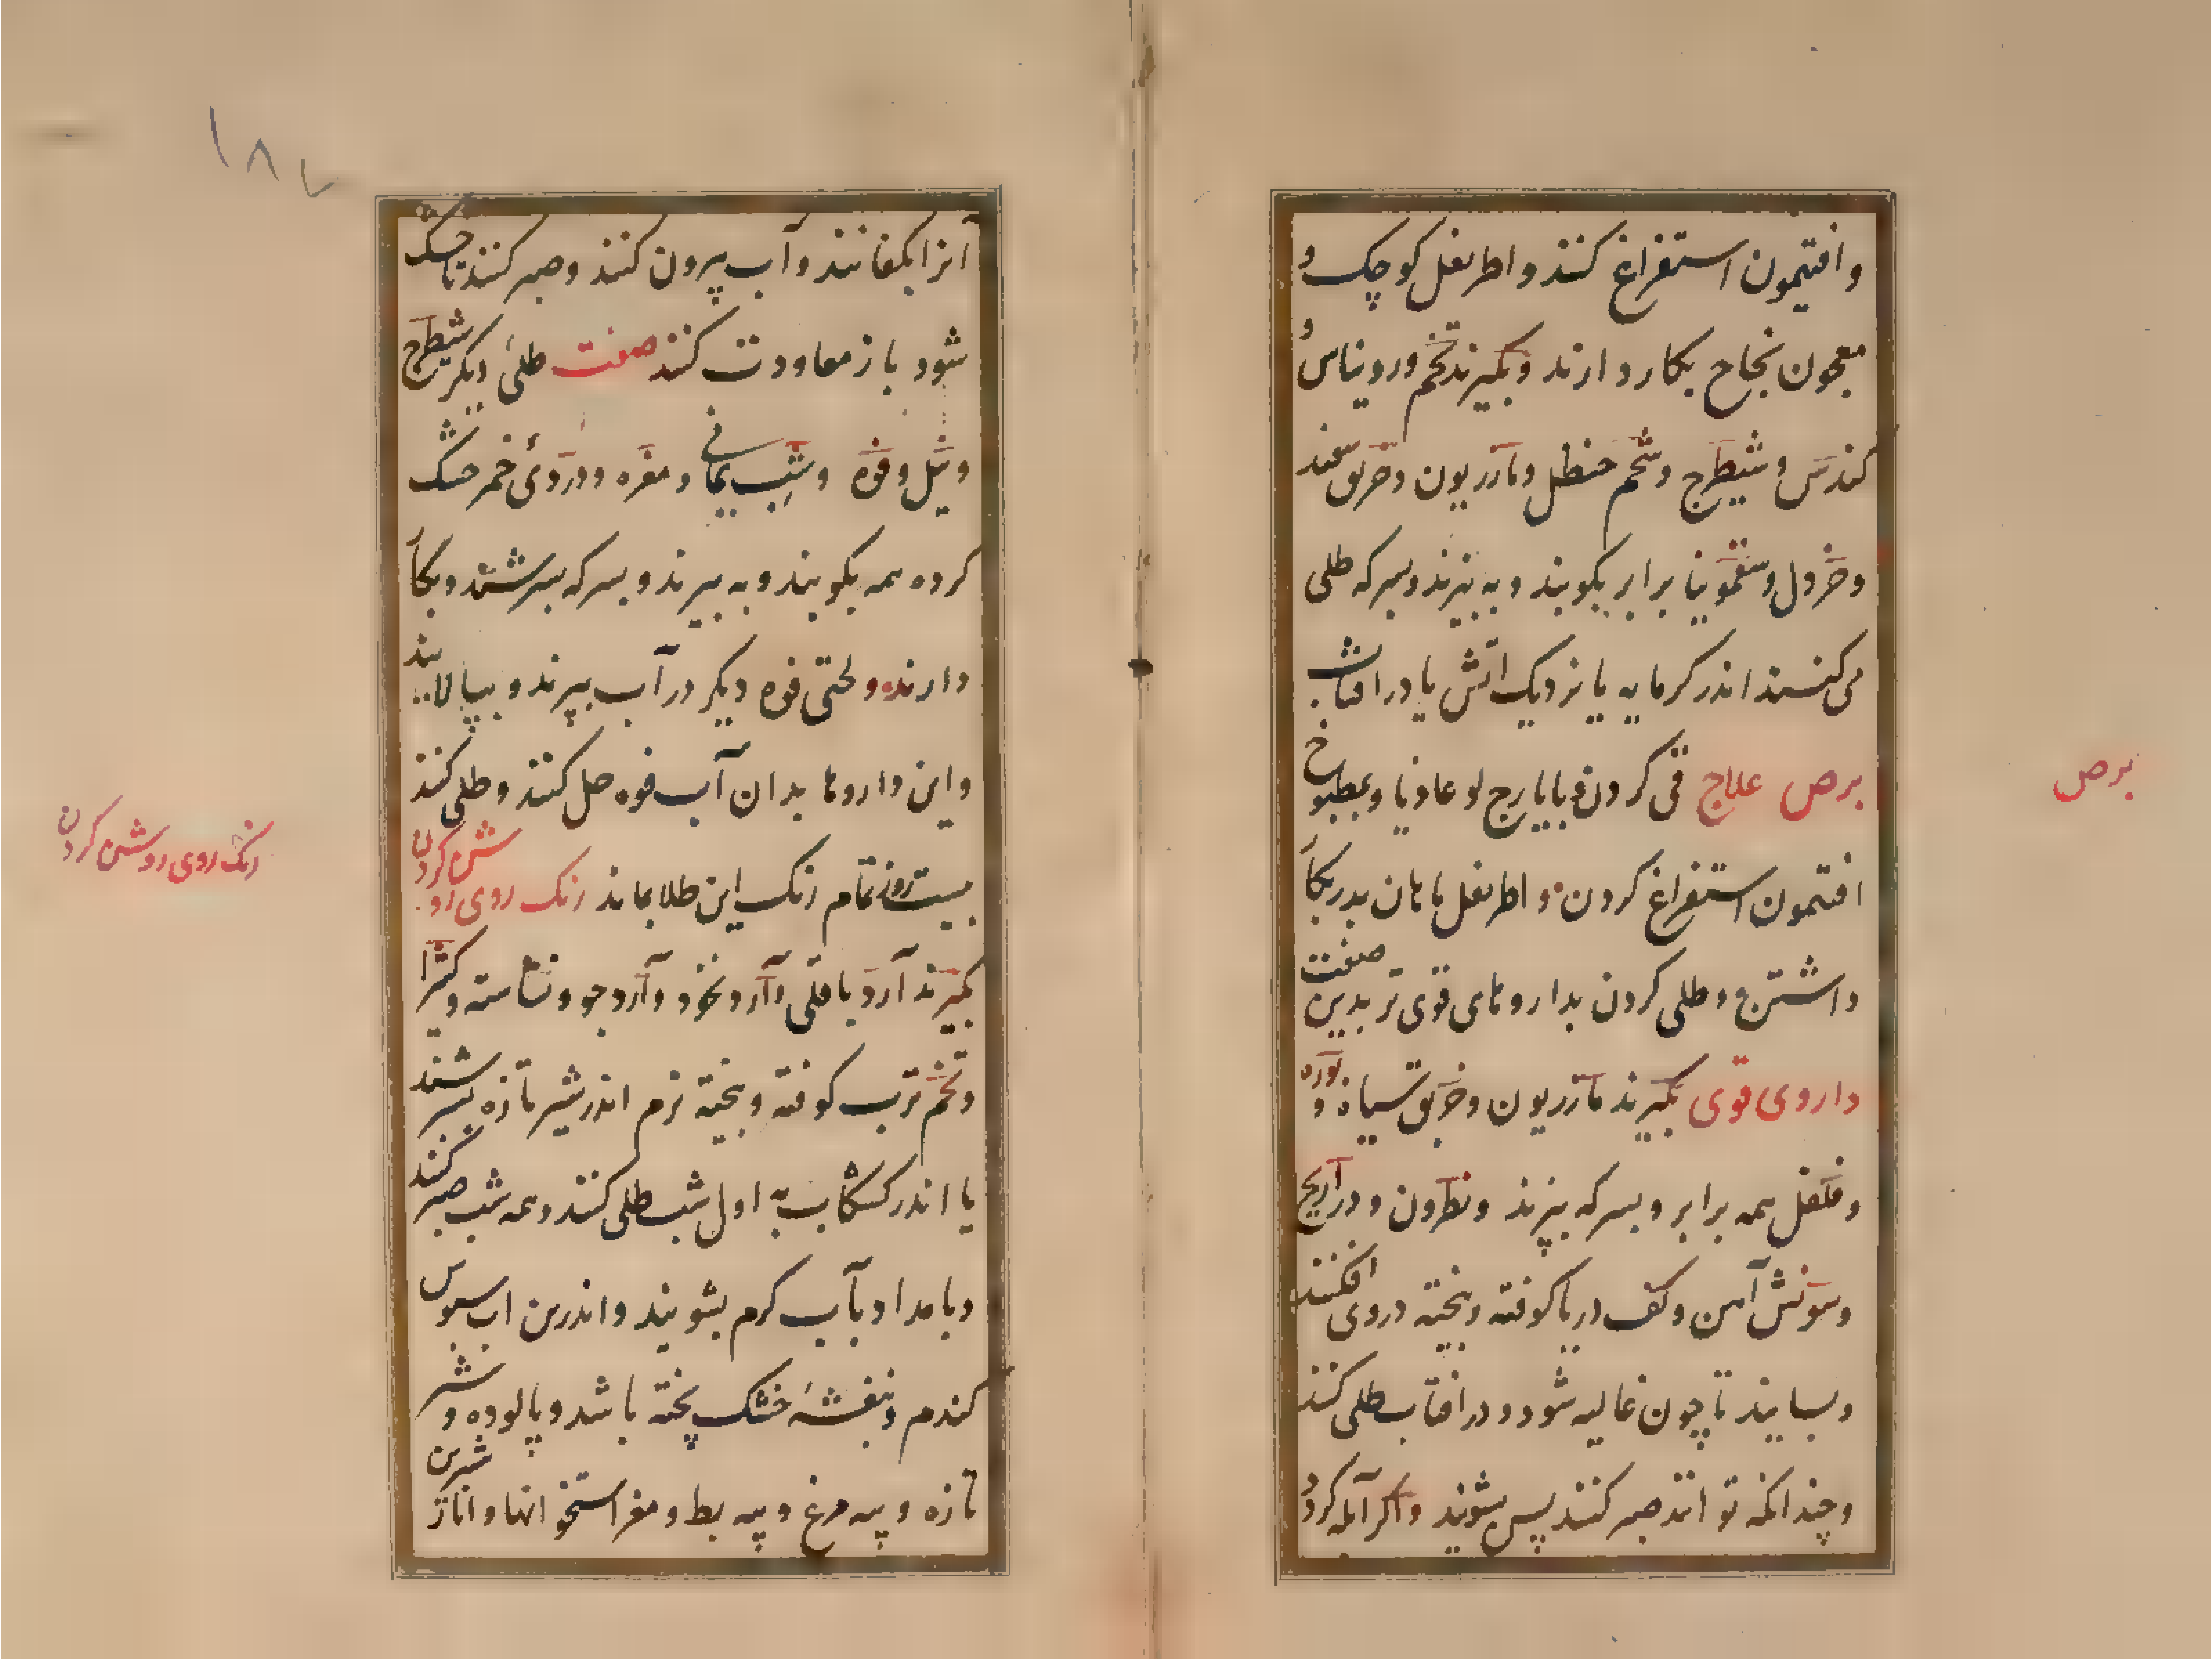 وافتیمون استفراغ کنند و اطریفل کوچک و
معجون نجاح بکار دارند و بکیرند تخم و رویناس و
کندس و شیطرج و شحم حنظل و مازریون و خربق سفید
و خردل و سقمونیا برابر بکوبند و به بیزند و بسرکه طلی
می کنند اندر کرمابه یا نزدیک اتش یا در افتاب
برص علاج قی کردن و بایارج لوعادیا و بمطبوخ
افتیمون استفراغ کردن و اطریفل ماهان بدر بکا
داشتن و طلی کردن بداروهای قوی تر بدین صفت
داروی قوی بکیرند مازریون و خربق سیاه و نوره
و فلفل همه برابر و بسرکه بپزند و نطرون و دراریح
و سونش آهن و کف دریا کوفته و بیخته در وی افکنند
و بسایند تا چون غالیه شود و در افتاب طلی کنند
و چندانکه توانند صبر کنند پس بشویند و اکر آبله کرد
برص
۱۸۷
آنرا بکفانند و آب بیرون کنند و صبر کنند تا خشک
شود باز معاودت کنند صفت طلئ دیکر شیطرج
و نیل و فوه و شب یمانی و مغره و دردئ خمر خشک
کرده همه بکوبند و به بیزند و بسرکه بسرشند و بکا
دارند و لختی فوه دیکر در آب بپزند و بپالایند
و این داروها بدان آب فوه حل کنند و طلی کنند
بیست روز تمام رنک این طلا بماند رنک روی روشن کردن
بکیرند آرد باقلی و آرد نخود و آرد جو و نشاسته و کثیرا
و تخم ترب کوفته و بیخته نرم اندر شیر تازه بسرشند
یا اندر کشکاب به اول شب طلی کنند و همه شب صبر کنند
و بامداد بآب کرم بشویند و اندرین اب سبوس
کندم و بنفشهٔ خشک پخته باشد و پالوده و شیر
تازه و پیه مرغ و پیه بط و مغز استخوانها و انار شیرین
رنک روی روشن کردن